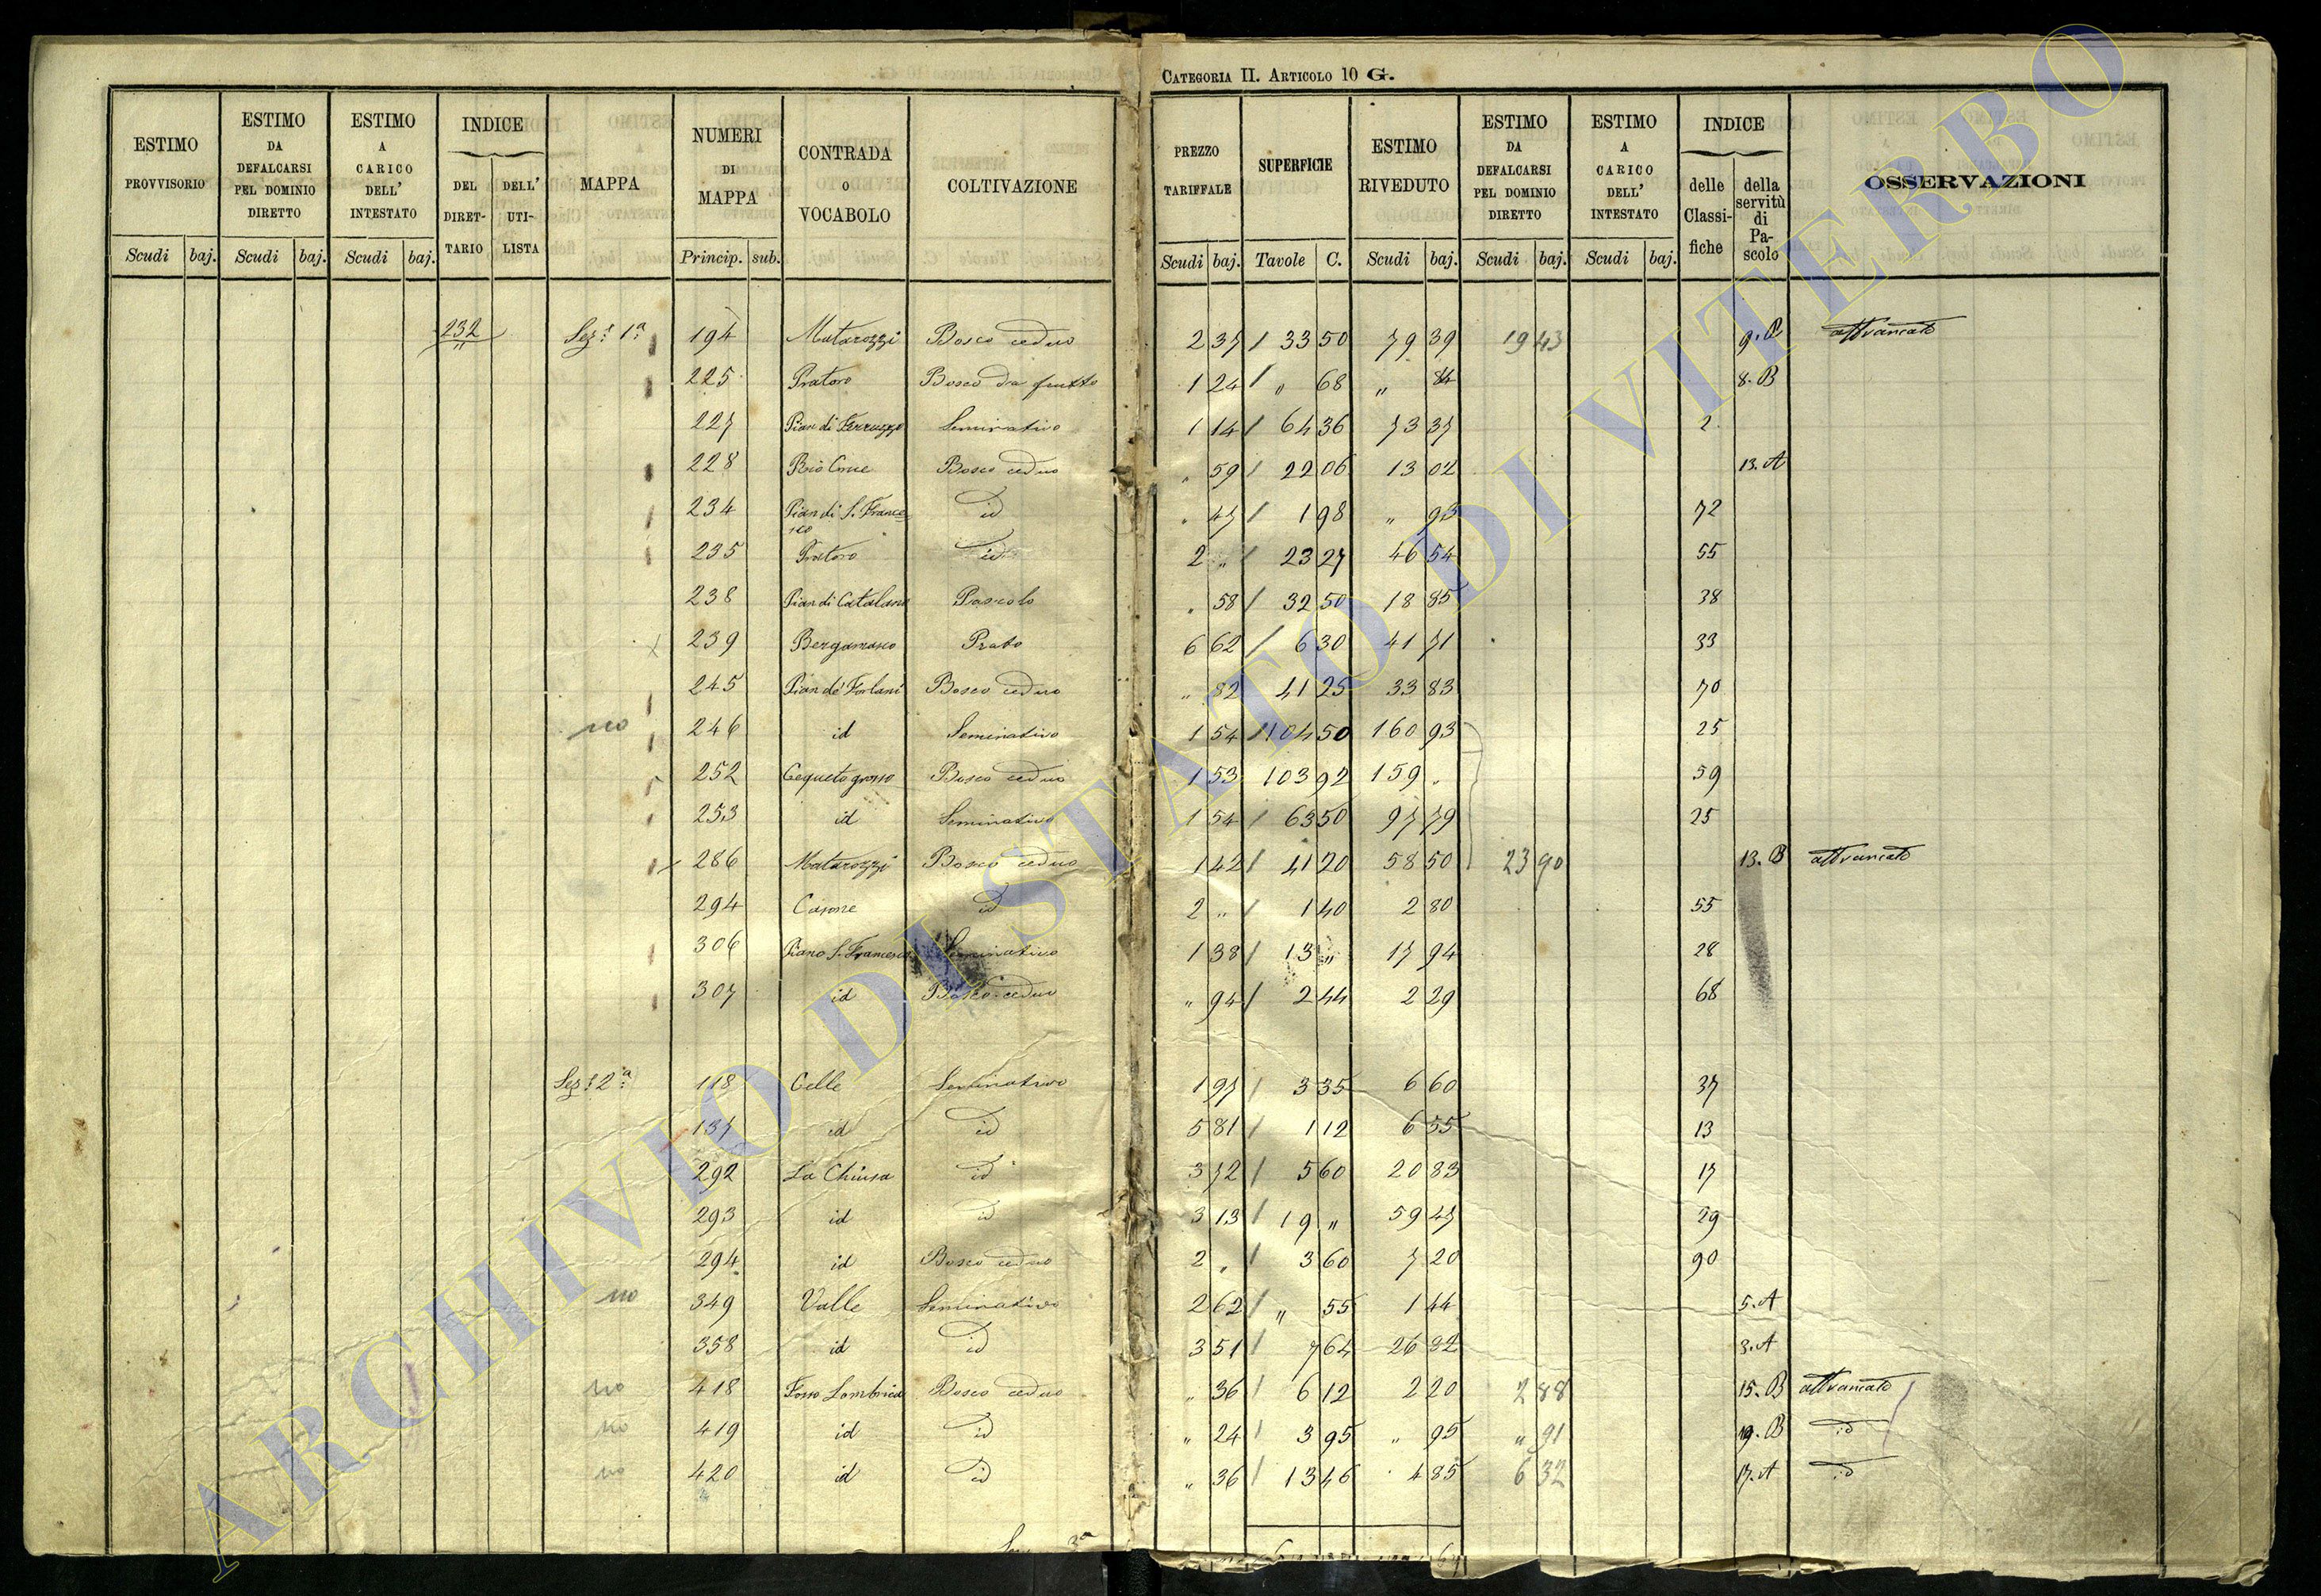 CATEGORIA II. ARTICOLO 10 G.
ESTIMO PROVVISORIO Scudi baj.
ESTIMO DA DEFALCARSI PEL DOMINIO DIRETTO Scudi baj.
ESTIMO A CARICO DELL' INTESTATO Scudi baj.
INDICE DEL DIRETTARIO DELL' UTILISTA
MAPPA
NUMERI DI MAPPA Princip. sub.
CONTRADA O VOCABOLO
COLTIVAZIONE
PREZZO TARIFFALE Scudi baj.
SUPERFICIE Tavole C.
ESTIMO RIVEDUTO Scudi baj.
ESTIMO DA DEFALCARSI PEL DOMINIO DIRETTO Scudi baj.
ESTIMO A CARICO DELL' INTESTATO Scudi baj.
INDICE delle Classifiche della servitù di Pascolo
OSSERVAZIONI
232 Sez.e 1a 194 Matarozzi Bosco ceduo 2 37 / 33 50 79 39 19 43 attrancato
225 Pratoro Bosco da frutto 1 24 / " 68 " 84 8. B
227 Pian di Ferruzzo Seminativo 1 14 / 64 36 73 37 2
228 Bosco ceduo " 59 / 22 06 13 02 13. A
234 Pian di S. Francesco id " 47 / 1 98 " 93 72
235 Pratoro id 2 " / 23 27 46 54 55
238 Pian di Catalano Pascolo " 58 / 32 50 18 85 38
239 Bergamasco Prato 6 62 / 6 30 41 71 33
245 Pian de' Forlani Bosco ceduo " 82 41 25 33 83 70
no 246 id Seminativo 1 54 / 104 50 160 93 25
252 Cequeto grosso Bosco ceduo 1 53 103 92 159 " 59
253 id Seminativo 1 54 / 63 50 97 79 25
286 Matarozzi Bosco ceduo 1 42 / 41 20 58 50 23 90 13. B attrancato
294 Casone id 2 " / 1 40 2 80 55
306 Piano S. Francesco Seminativo 1 38 / 13 " 17 94 28
307 id Bosco ceduo " 94 / 2 44 2 29 68
Sez.e 2a 118 Celle Seminativo 1 97 / 3 35 6 60 37
137 id id 5 81 / 1 12 6 55 13
292 La Chiusa id 3 72 / 5 60 20 83 17
293 id id 3 13 / 19 " 59 47 29
294 id Bosco ceduo 2 " / 3 60 7 20 90
no 349 Valle Seminativo 2 62 / " 55 1 44 5. A
358 id id 3 51 / 7 64 26 82 3. A
no 418 Fosso Lombrica Bosco ceduo " 36 / 6 12 2 20 2 88 15. B attrancato
no 419 id id " 24 / 3 95 " 95 " 91 19. B id
no 420 id id " 36 / 13 46 4 85 6 32 17. A id
ARCHIVIO DI STATO DI VITERBO